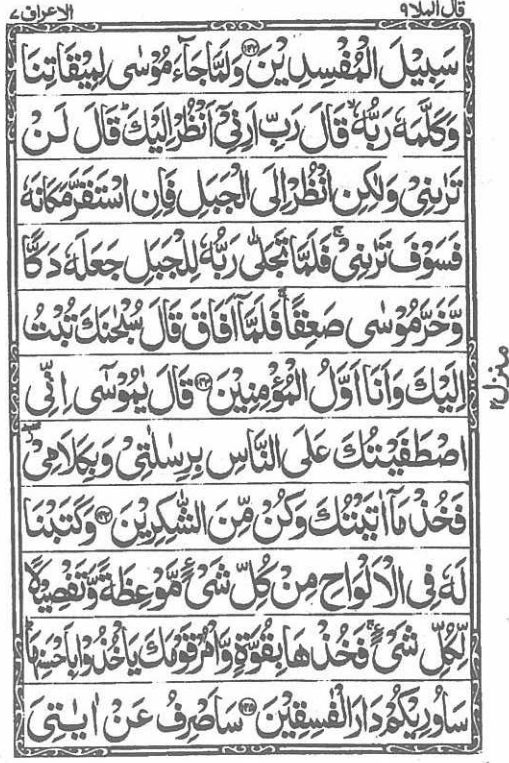 قال الملا ٩
الاعراف ٧
سَبِيْلَ الْمُفْسِدِيْنَ ﴿۱۴۲﴾ وَلَمَّا جَآءَ مُوْسٰى لِمِيْقَاتِنَا
وَكَلَّمَهٗ رَبُّهٗ ۙ قَالَ رَبِّ اَرِنِيْۤ اَنْظُرْ اِلَيْكَ ؕ قَالَ لَنْ
تَرٰىنِيْ وَلٰكِنِ انْظُرْ اِلَى الْجَبَلِ فَاِنِ اسْتَقَرَّ مَكَانَهٗ
فَسَوْفَ تَرٰىنِيْ ۚ فَلَمَّا تَجَلّٰى رَبُّهٗ لِلْجَبَلِ جَعَلَهٗ دَكًّا
وَّخَرَّ مُوْسٰى صَعِقًا ۚ فَلَمَّاۤ اَفَاقَ قَالَ سُبْحٰنَكَ تُبْتُ
اِلَيْكَ وَاَنَا اَوَّلُ الْمُؤْمِنِيْنَ ﴿۱۴۳﴾ قَالَ يٰمُوْسٰۤى اِنِّى
اصْطَفَيْتُكَ عَلَى النَّاسِ بِرِسٰلٰتِيْ وَبِكَلَامِيْ ۖ
فَخُذْ مَاۤ اٰتَيْتُكَ وَكُنْ مِّنَ الشّٰكِرِيْنَ ﴿۱۴۴﴾ وَكَتَبْنَا
لَهٗ فِى الْاَلْوَاحِ مِنْ كُلِّ شَيْءٍ مَّوْعِظَةً وَّتَفْصِيْلًا
لِّكُلِّ شَيْءٍ ۚ فَخُذْهَا بِقُوَّةٍ وَّاْمُرْ قَوْمَكَ يَاْخُذُوْا بِاَحْسَنِهَا ؕ
سَاُورِيْكُمْ دَارَ الْفٰسِقِيْنَ ﴿۱۴۵﴾ سَاَصْرِفُ عَنْ اٰيٰتِيَ
منزل ٢